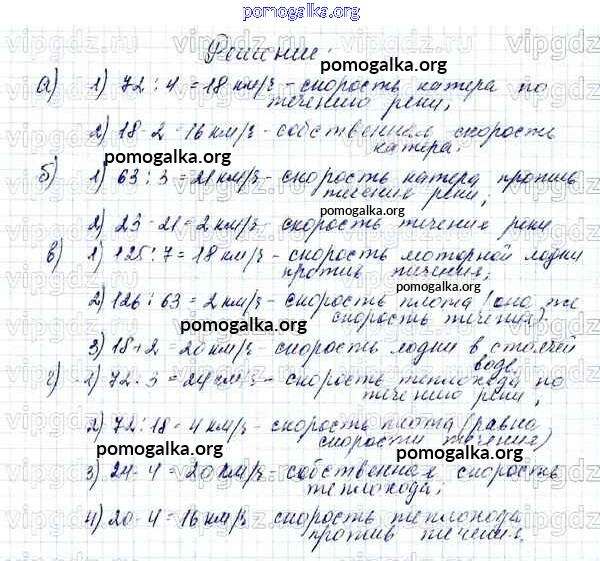 pomogalka.org
Решение:
а) 1) 72 : 4 = 18 км/ч - скорость катера по
течению реки;
2) 18 - 2 = 16 км/ч - собственная скорость
катера.
pomogalka.org
б) 1) 63 : 3 = 21 км/ч - скорость катера против
течения реки;
2) 23 - 21 = 2 км/ч - скорость течения реки
pomogalka.org
в) 1) 125 : 7 = 18 км/ч - скорость моторной лодки
против течения;
2) 126 : 63 = 2 км/ч - скорость плота (она же
скорость течения).
pomogalka.org
3) 18 + 2 = 20 км/ч - скорость лодки в стоячей
воде.
г) 1) 72 : 3 = 24 км/ч - скорость теплохода по
течению реки;
2) 72 : 18 = 4 км/ч - скорость плота (равна
скорости течения)
pomogalka.org
3) 24 - 4 = 20 км/ч - собственная скорость
теплохода;
4) 20 - 4 = 16 км/ч скорость теплохода
против течения.
pomogalka.org